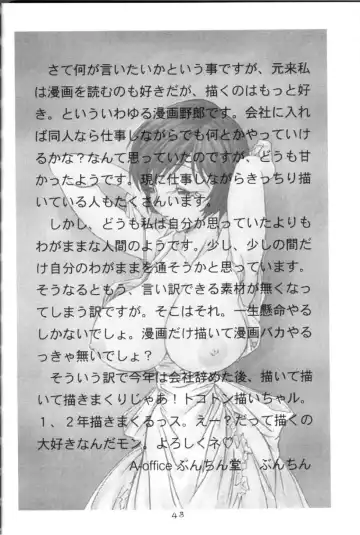 さて何が言いたいかという事ですが、元来私
は漫画を読むのも好きだが、描くのはもっと好
き。といういわゆる漫画野郎です。会社に入れ
ば同人なら仕事しながらでも何とかやっていけ
るかな？なんて思っていたのですが、どうも甘
かったようです。現に仕事しながらきっちり描
いている人もたくさんいます。
しかし、どうも私は自分が思っていたよりも
わがままな人間のようです。少し、少しの間だ
け自分のわがままを通そうかと思っています。
そうなるともう、言い訳できる素材が無くなっ
てしまう訳ですが。そこはそれ。一生懸命やる
しかないでしょ。漫画だけ描いて漫画バカやる
っきゃ無いでしょ？
そういう訳で今年は会社辞めた後、描いて描
いて描きまくりじゃあ！トコトン描いちャル。
１、２年描きまくるっス。えー？だって描くの
大好きなんだモン。よろしくネ♡
A-office ぶんちん堂　ぶんちん
48